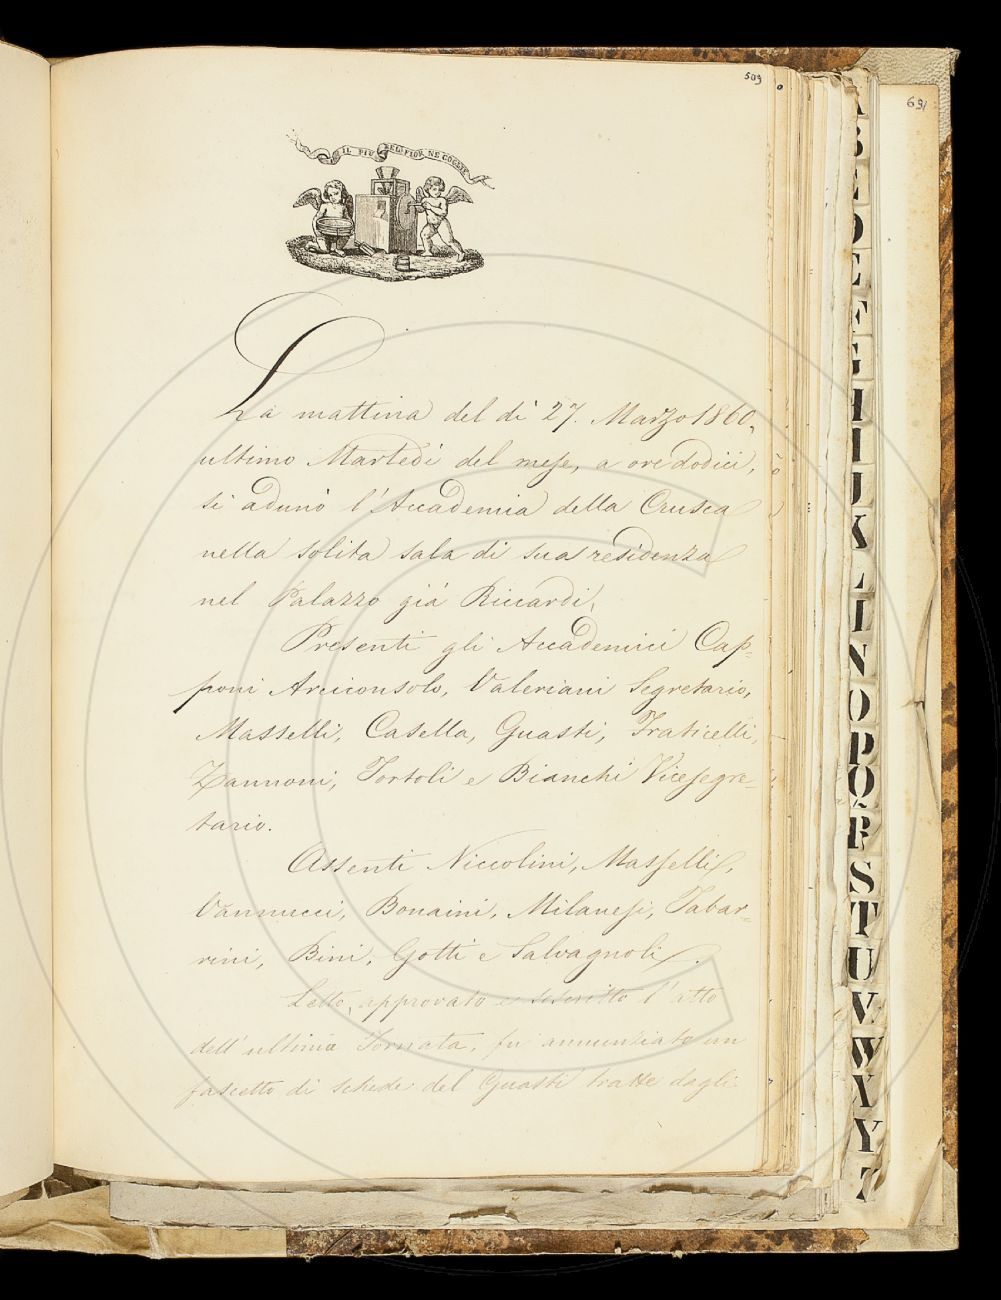 503
691
IL PIÙ BEL FIOR NE COGLIE
La mattina del dì 27. Marzo 1860,
ultimo Martedì del mese, a ore dodici,
si adunò l'Accademia della Crusca
nella solita sala di sua residenza
nel Palazzo già Riccardi.
Presenti gli Accademici Cap-
poni Arciconsolo, Valeriani Segretario,
Masselli, Casella, Guasti, Fraticelli,
Zannoni, Tortoli e Bianchi Vicesegre-
tario.
Assenti Niccolini, Masselli,
Vannucci, Bonaini, Milanesi, Tabar-
rini, Bini, Gotti e Salvagnoli.
Letto, approvato e soscritto l'atto
dell'ultima Tornata, fu annunziato un
fascetto di schede del Guasti tratte dagli
B
E
D
E
F
G
H
I
J
K
L
I
N
O
P
Q
R
S
T
U
V
W
X
Y
Z